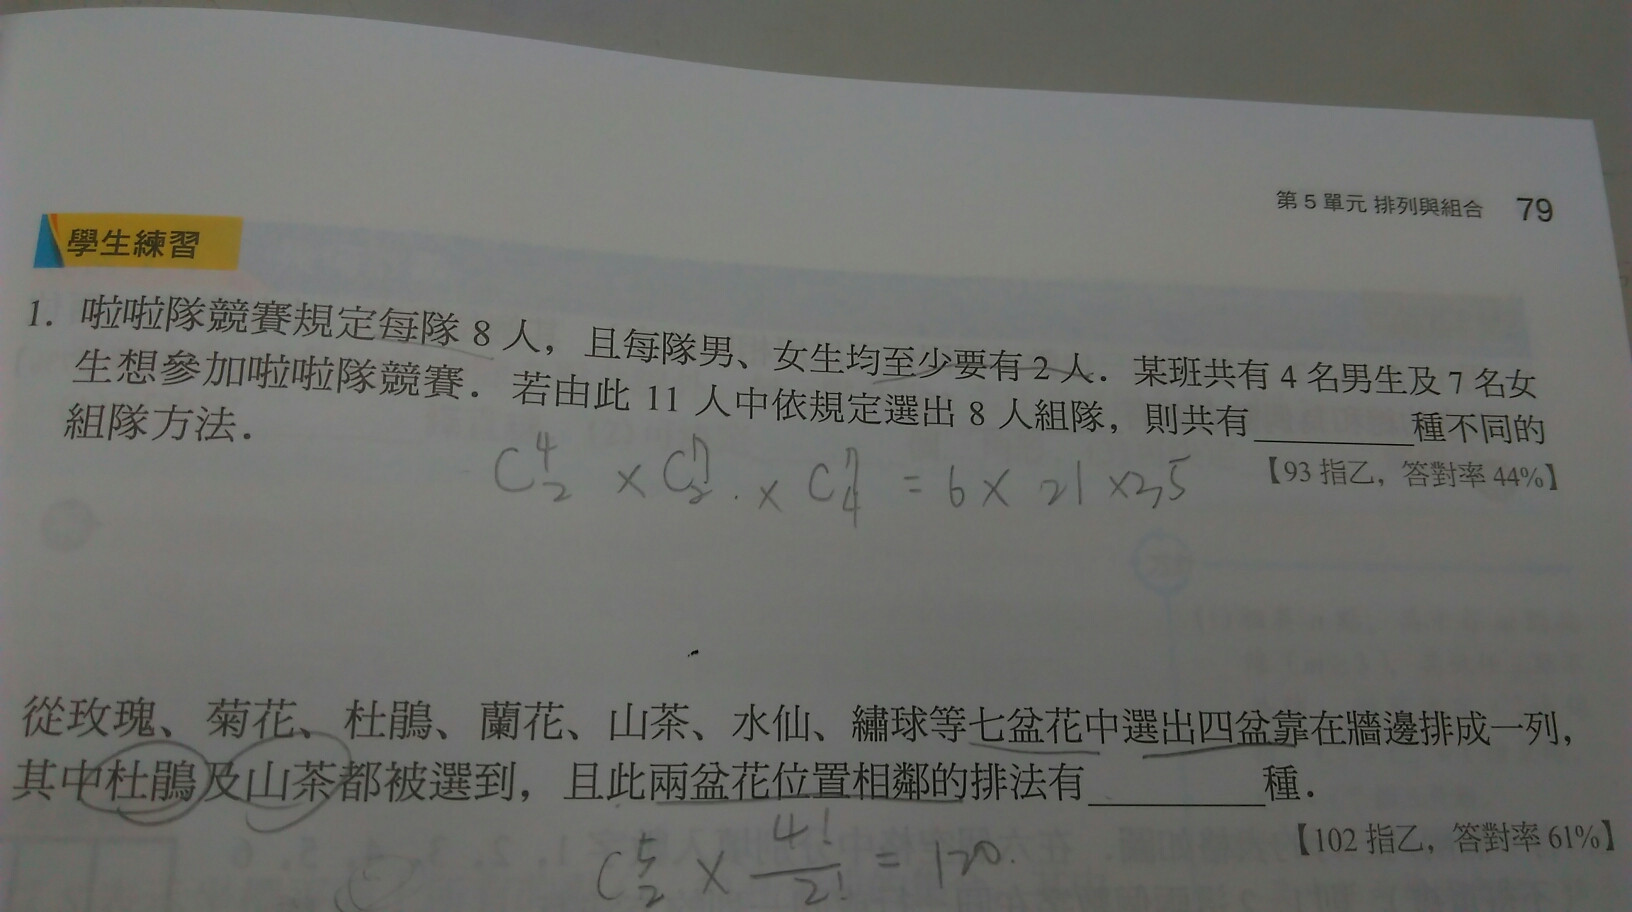 第 5 單元 排列與組合 79
學生練習
1. 啦啦隊競賽規定每隊 8 人，且每隊男、女生均至少要有 2 人．某班共有 4 名男生及 7 名女
生想參加啦啦隊競賽．若由此 11 人中依規定選出 8 人組隊，則共有________種不同的
組隊方法．
【93 指乙，答對率 44%】
C⁴₂ × C⁷₂ . × C⁷₄ = 6 × 21 × 35
從玫瑰、菊花、杜鵑、蘭花、山茶、水仙、繡球等七盆花中選出四盆靠在牆邊排成一列，
其中杜鵑及山茶都被選到，且此兩盆花位置相鄰的排法有________種．
【102 指乙，答對率 61%】
C⁵₂ × 4!/2! = 120.